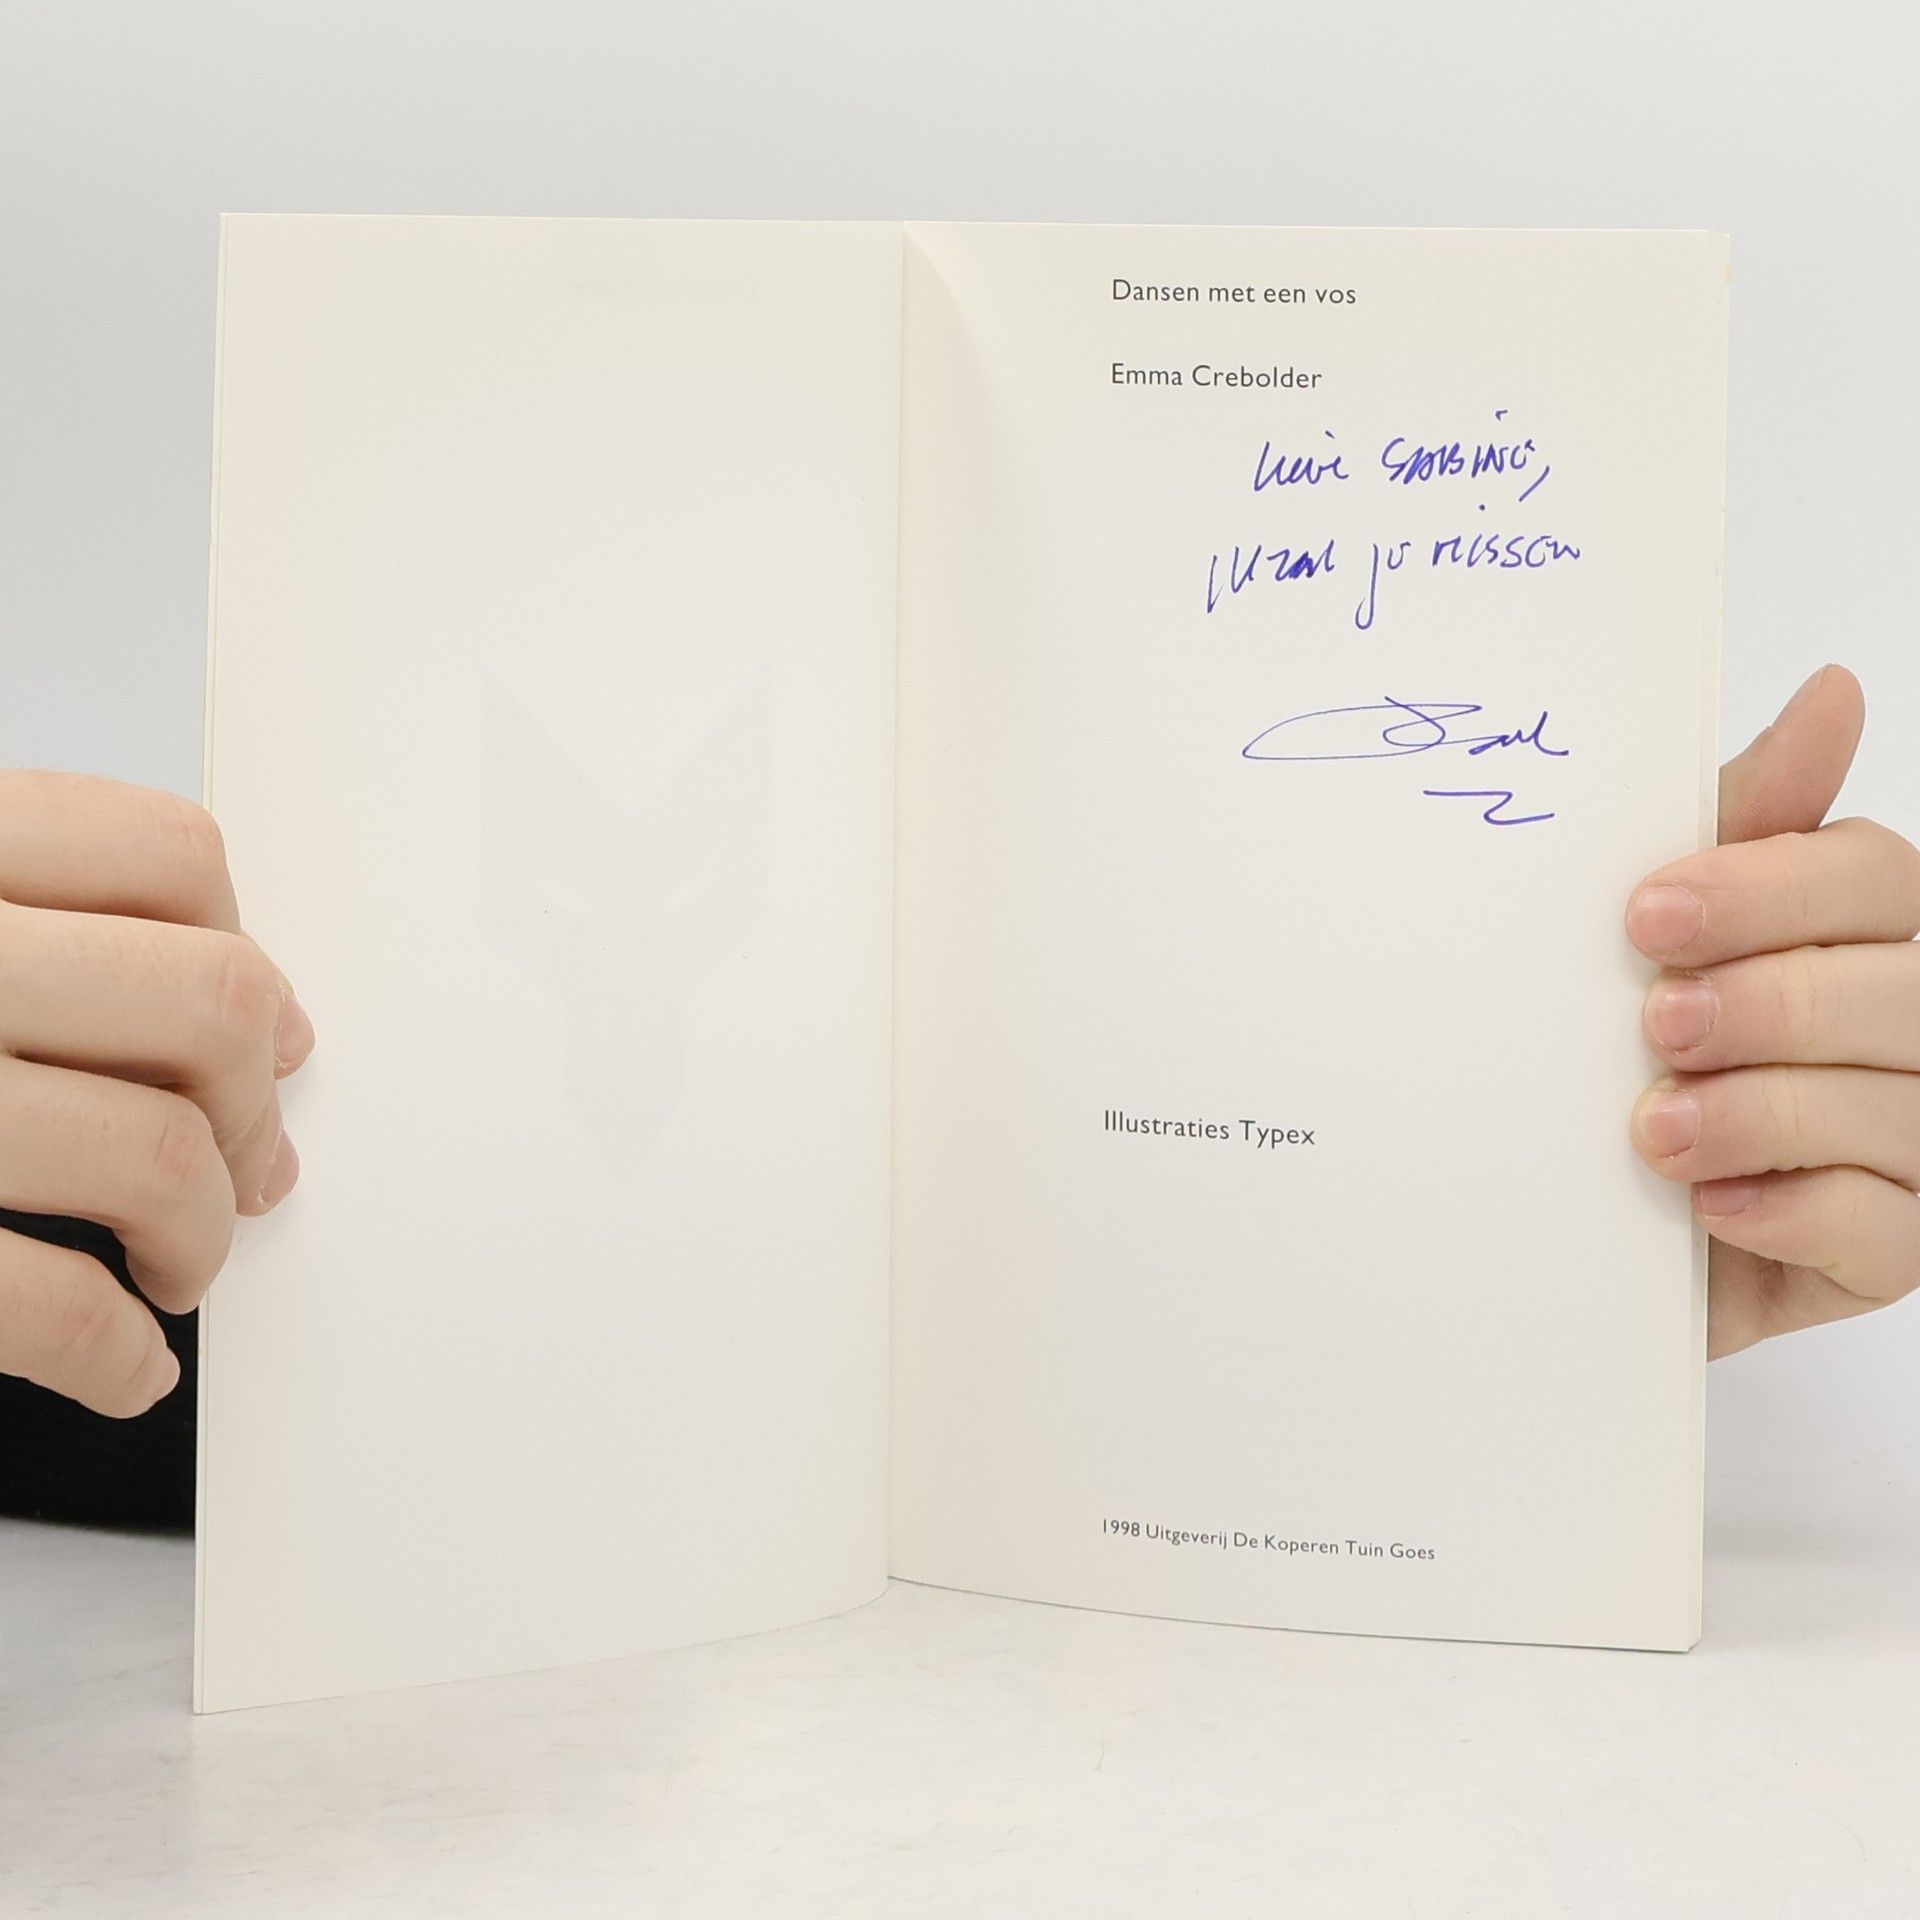 Dansen met een vos
Emma Crebolder
Lieve SABINE,
IK zal je missen
Illustraties Typex
1998 Uitgeverij De Koperen Tuin Goes